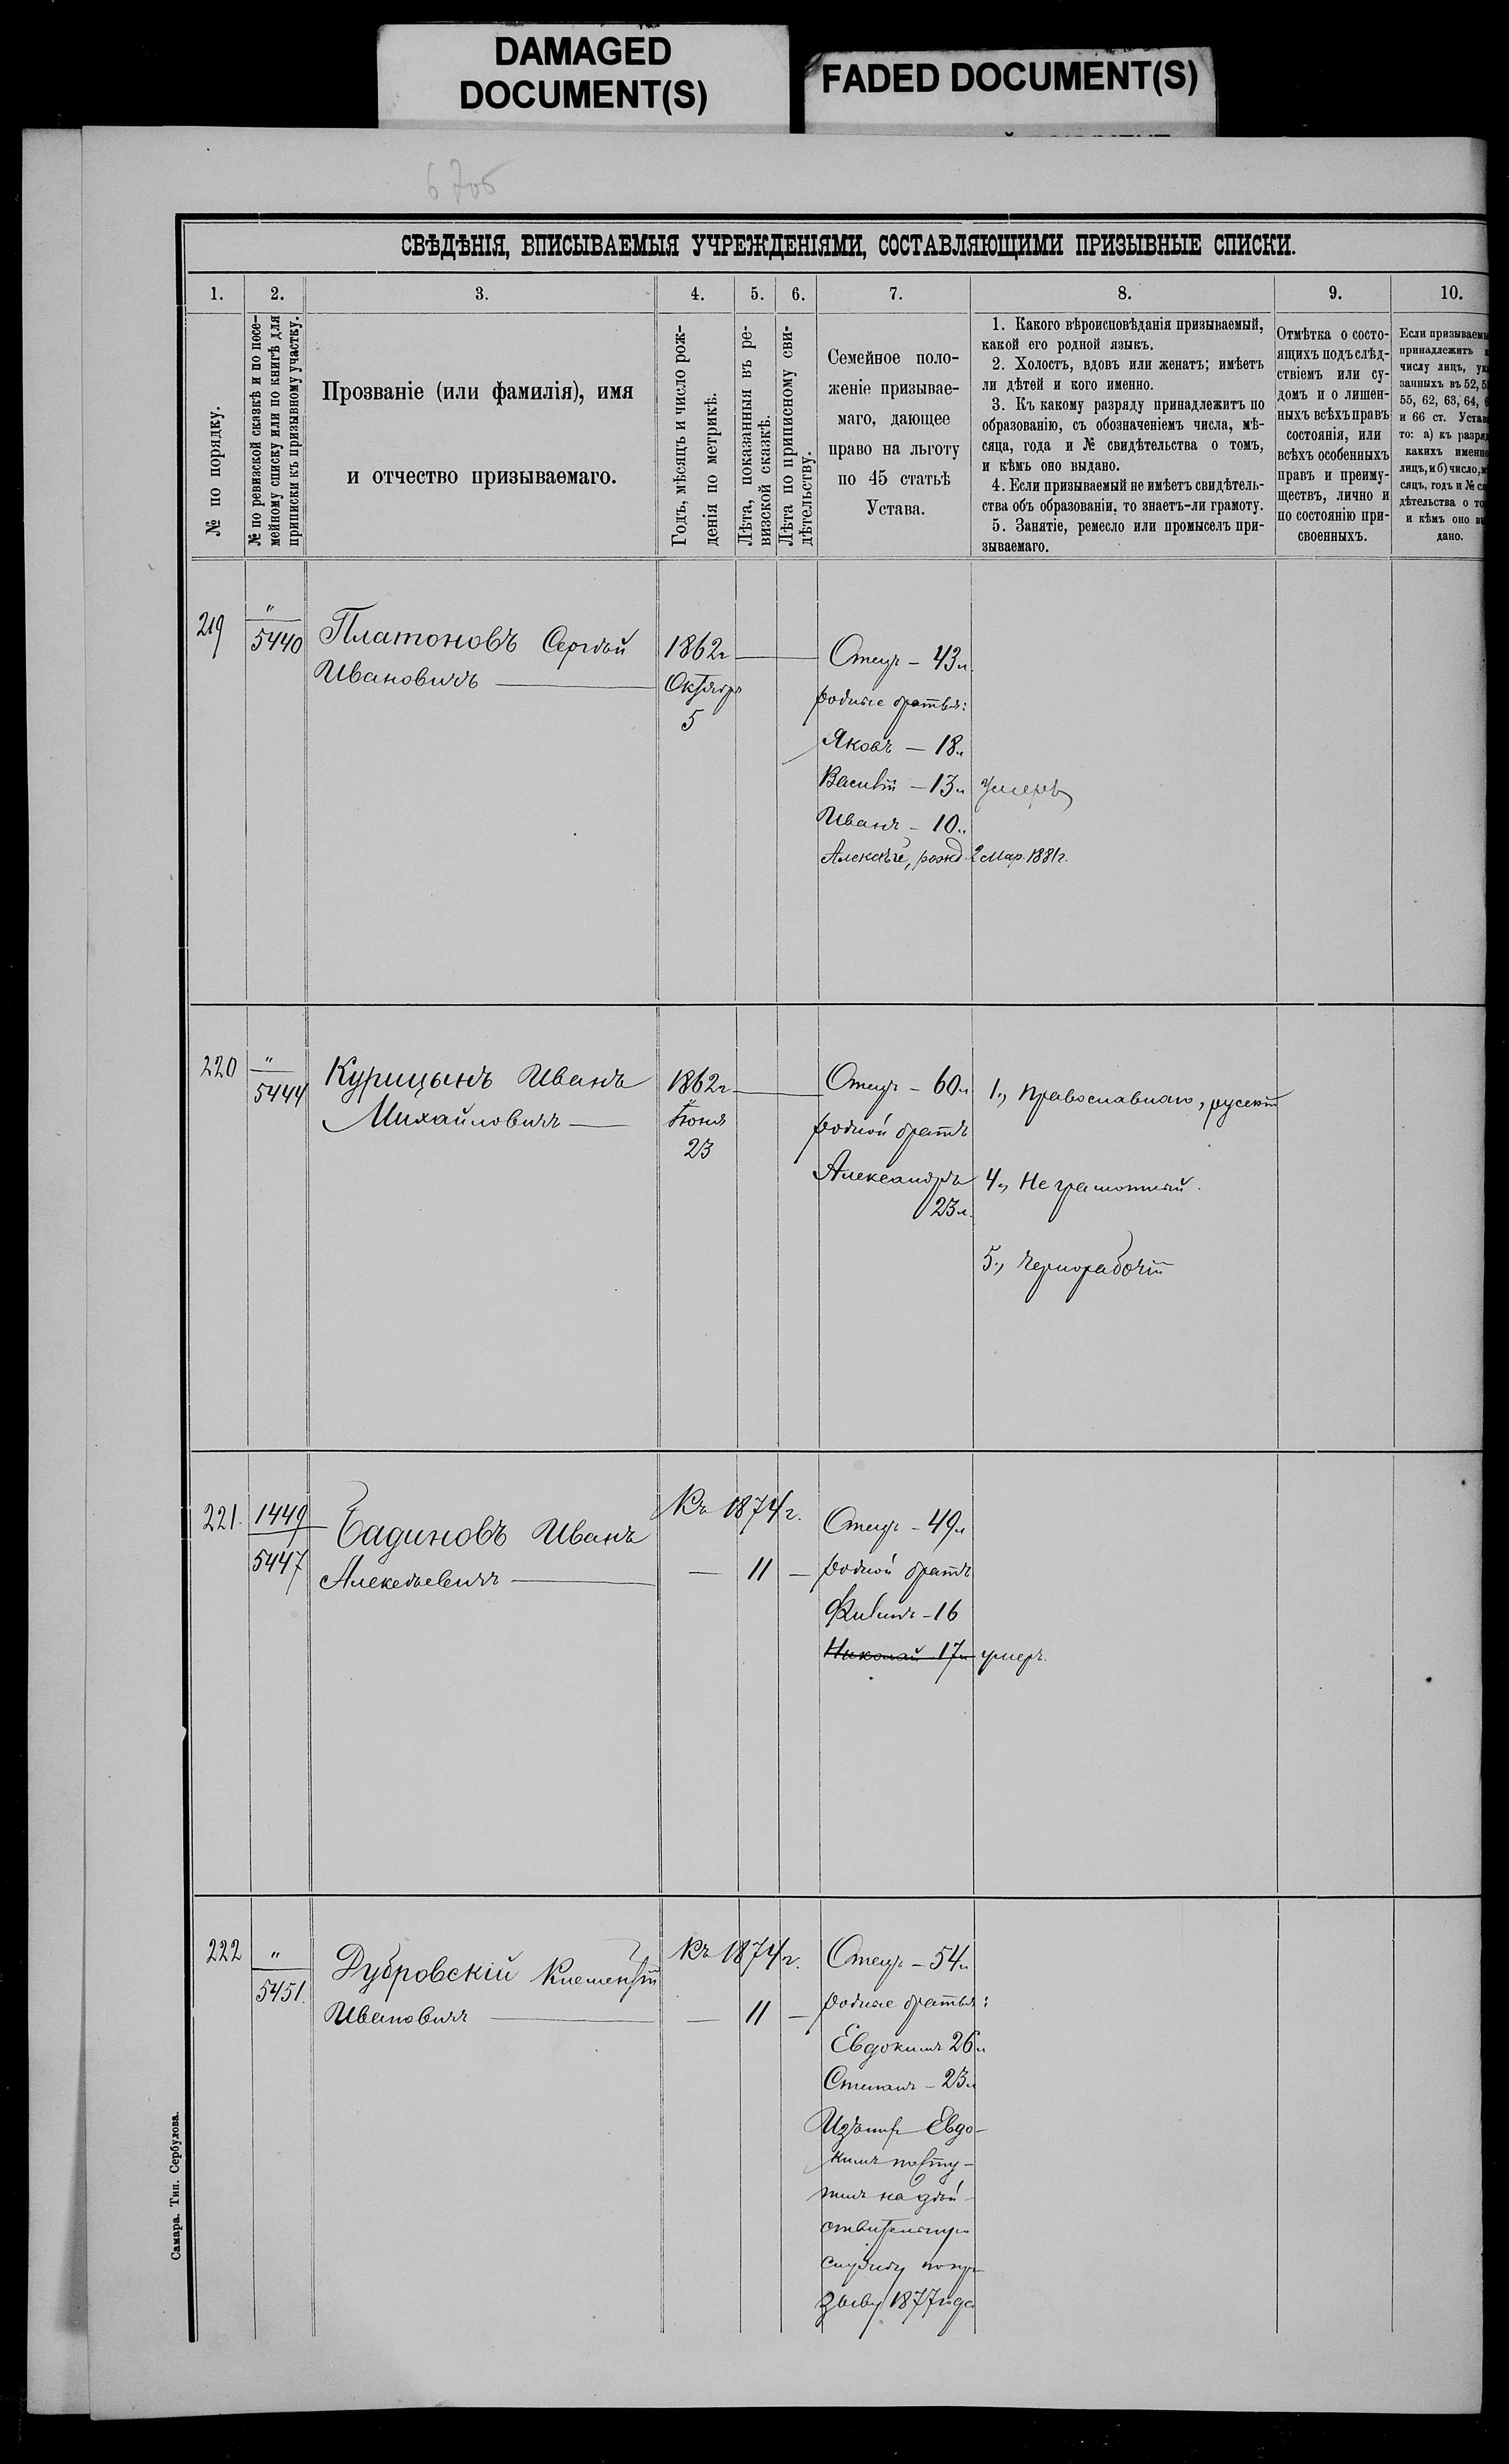 DAMAGED
DOCUMENT(S)
FADED DOCUMENT(S)
СВѢДѢНІЯ, ВПИСЫВАЕМЫЯ УЧРЕЖДЕНІЯМИ, СОСТАВЛЯЮЩИМИ ПРИЗЫВНЫЕ СПИСКИ.
1. 2. 3. 4. 5. 6. 7. 8. 9. 10.
№ по порядку.
№ по ревизской сказкѣ и по посе-
мейному списку или по книгѣ для
приписки къ призывному участку.
Прозваніе (или фамилія), имя
и отчество призываемаго.
Годъ, мѣсяцъ и число рож-
денія по метрикѣ.
Лѣта, показанныя въ ре-
визской сказкѣ.
Лѣта по приписному сви-
дѣтельству.
Семейное поло-
женіе призывае-
маго, дающее
право на льготу
по 45 статьѣ
Устава.
1. Какого вѣроисповѣданія призываемый,
какой его родной языкъ.
2. Холостъ, вдовъ или женатъ; имѣетъ
ли дѣтей и кого именно.
3. Къ какому разряду принадлежитъ по
образованію, съ обозначеніемъ числа, мѣ-
сяца, года и № свидѣтельства о томъ,
и кѣмъ оно выдано.
4. Если призываемый не имѣетъ свидѣтель-
ства объ образованіи, то знаетъ-ли грамоту.
5. Занятіе, ремесло или промыселъ при-
зываемаго.
Отмѣтка о состо-
ящихъ подъ слѣд-
ствіемъ или су-
домъ и о лишен-
ныхъ всѣхъ правъ
состоянія, или
всѣхъ особенныхъ
правъ и преиму-
ществъ, лично и
по состоянію при-
своенныхъ.
Если призываемы
принадлежитъ
числу лицъ, ук
занныхъ въ 52, 5
55, 62, 63, 64, 6
и 66 ст. Устав
то: а) къ разряд
какихъ именно
лицъ, и б) число, м
сяцъ, годъ и № св
дѣтельства о то
и кѣмъ оно вы
дано.
219 " 5440 Платоновъ Сергѣй
Ивановичъ
1862г
Октября
5
Отецъ – 43л.
родные братья:
Яковъ – 18л
Василій – 13л умеръ
Иванъ – 10л
Алексѣй, рожд. 2 Мар. 1881г.
220 " 5444 Курицынъ Иванъ
Михайловичъ
1862г
Іюня
23
Отецъ – 60л
родной братъ
Александръ
23л.
1., Православнаго, русскій
4., Неграмотный.
5., Чернорабочій
221. 1449 5447 Бадиновъ Иванъ
Алексѣевичъ
Къ 1874г.
— 11 —
Отецъ – 49л
родной братъ
Филипъ – 16
Николай 17л умеръ.
222 " 5451. Дубровскій Клементій
Ивановичъ
Къ 1874г.
— 11 —
Отецъ – 54л
родные братья:
Евдокимъ 26л
Степанъ – 23л
Изъ нихъ Евдо-
кимъ посту-
пилъ на дѣй-
ствительную
службу по при-
зыву 1877 года
Самара. Тип. Сербулова.